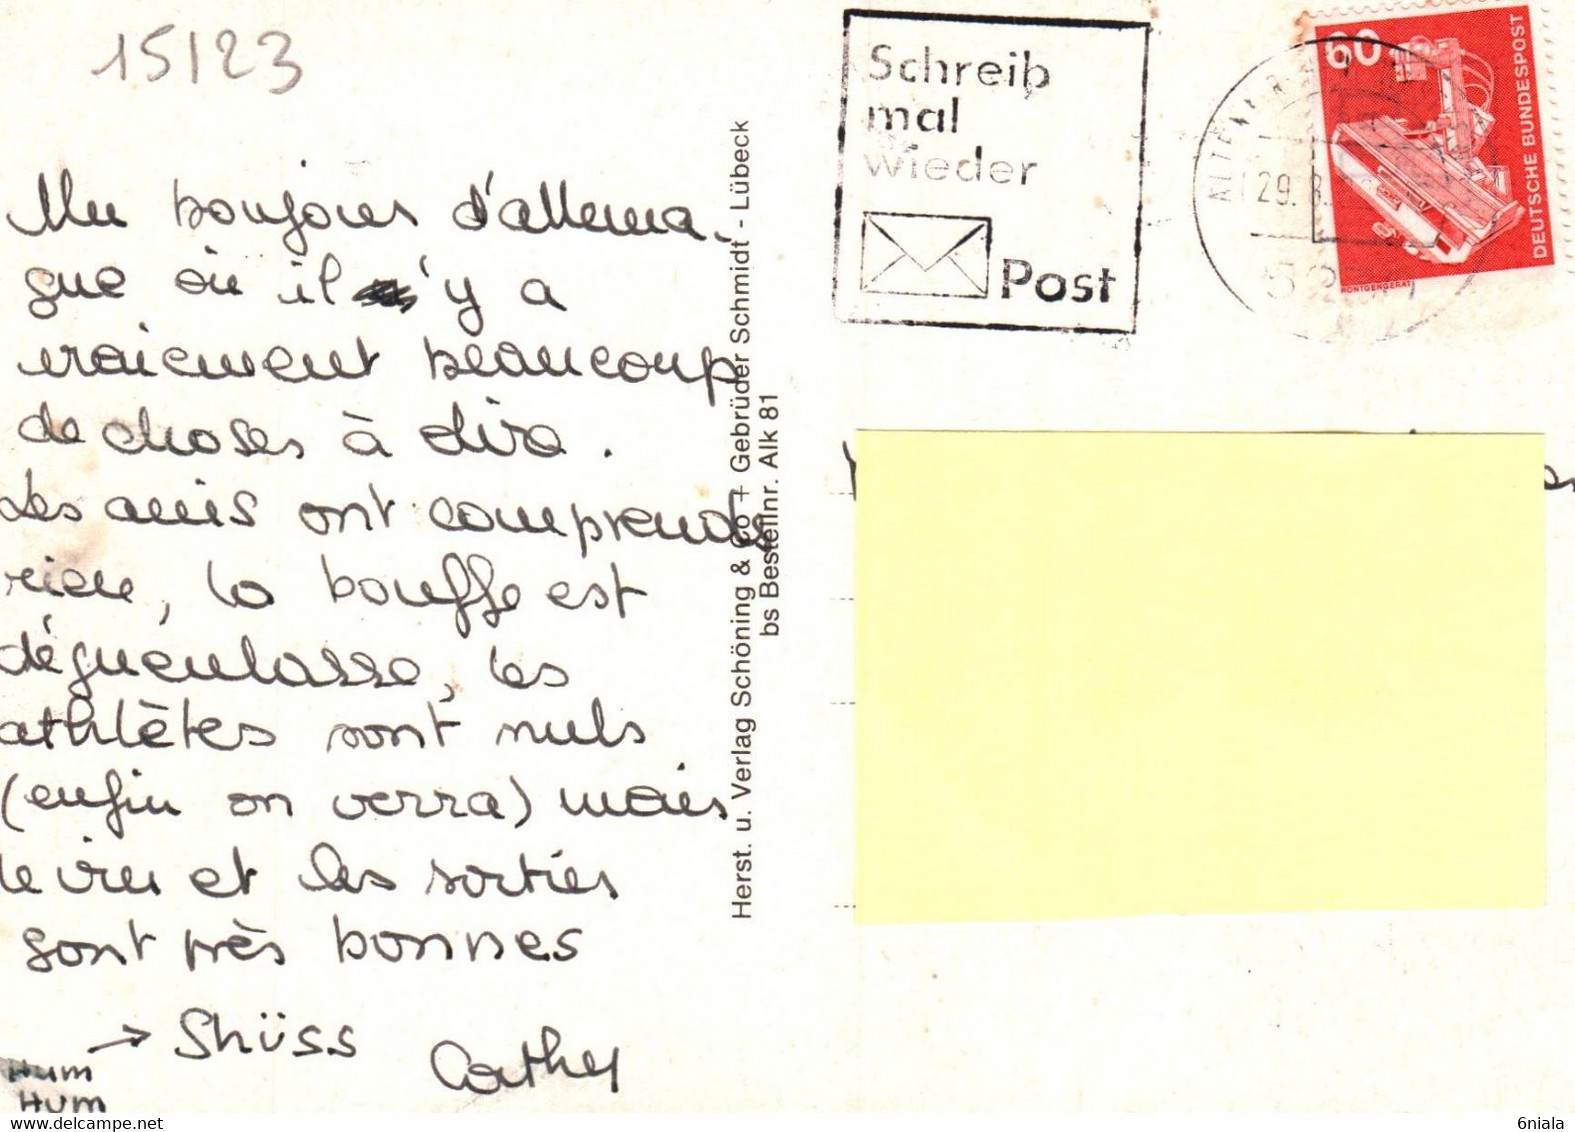 15123
Un bonjour d'allema-
gne où il 'y a
vraiement beaucoup
de choses à dire.
Les amis ont comprends
rien, la bouffe est
dégueulasse, les
athlètes sont nuls
(enfin on verra) mais
le vin et les sorties
sont très bonnes
→ Shüss
Cathy
Hum
Hum
Herst. u. Verlag Schöning & Co + Gebrüder Schmidt - Lübeck
bs Bestellnr. Alk 81
Schreib
mal
wieder
Post
29.8.
60
DEUTSCHE BUNDESPOST
RÖNTGENGERÄT
www.delcampe.net
6niala